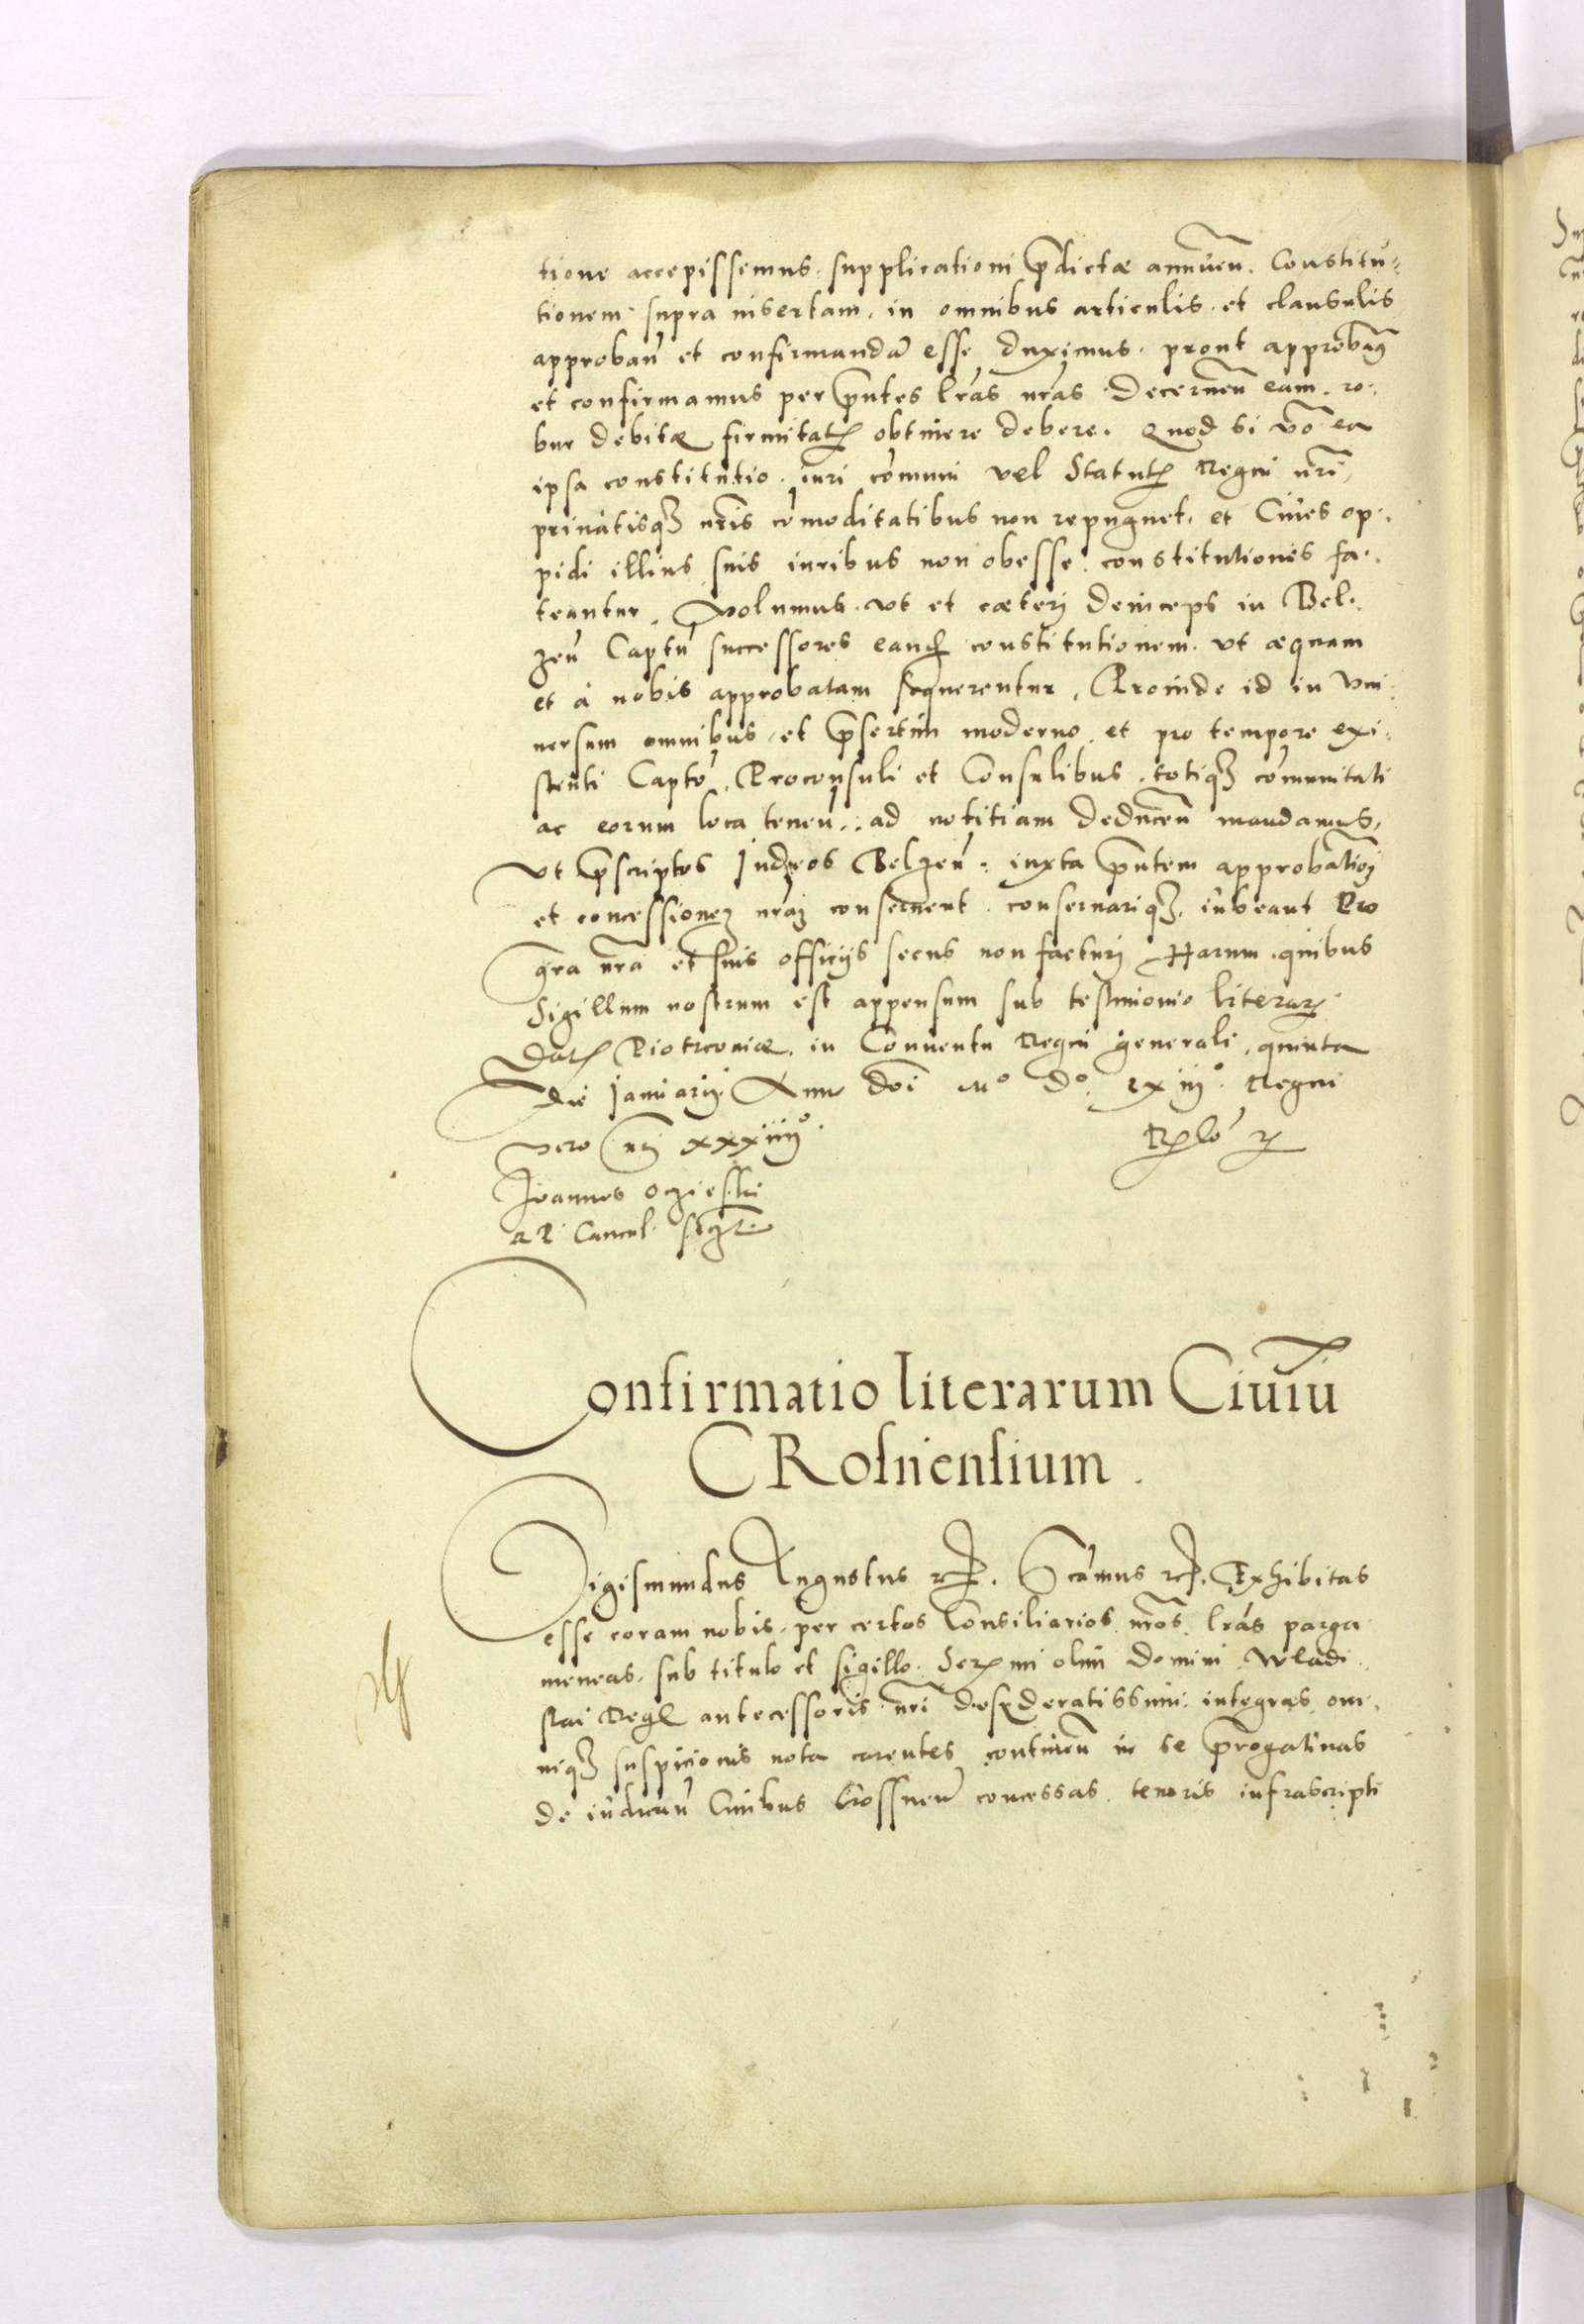 tione accepissemus. supplicationi p̄dictæ annuen̄. Constitu=
tionem supra insertam. in omnibus articulis et clausulis
approban̄ et confirmandā esse duximus. prout approbamꝰ
et confirmamus per p̄ntes lr̄as nr̄as. Decernen̄ eam. ro-
bur debitæ firmitatis obtinere debere. Quod si vō ea
ipsa constitutio iuri cōmuni vel Statutis Regni nr̄i,
priuatisqꝫ nr̄is cōmoditatibus non repugnet. et Ciues op-
pidi illius suis iuribus non obesse constitutiones fa-
teantur. Volumus vt et cæteri deinceps in Bel-
zen̄ Captū successores eand constitutionem vt æquam
et à nobis approbatam sequerentur. Proinde id in vni-
uersum omnibus et p̄sertim moderno et pro tempore exi-
stenti Captō, Proconsuli et Consulibus totiqꝫ cōmunitati
ac eorum loca tenen̄. ad notitiam deducen̄ mandamus.
vt p̄scriptos Judæos Belzen̄. iuxta p̄ntem approbationē
et concessionem nr̄am conseruent conseruariqꝫ iubeant Pro
gr̄a nr̄a et suis officijs secus non facturi Harum quibus
Sigillum nostrum est appensum sub testimonio literarꝫ
Datꝫ Piotrconiæ in Conuentu Regni generali, quinta
die Januarij Anno Dn̄i Mº Dº. lxiijº. Regni
vero nr̄i xxxiiijº.
Joannes Oczieski
R P Cancel.
Confirmatio literarum Ciuiū
CRosnensium.
Sigismundus Augustus etc. Exhibitas
esse coram nobis per certos Consiliarios nr̄os lr̄as parga
meneas sub titulo et sigillo Serꝫmi olim Domini Wladi
slai Regꝫ antecessoris nr̄i desyderatissimi integras om-
niqꝫ suspicionis nota carentes continen̄ in se p̄rogatiuas
de iudicijs Ciuibus Crossnen̄ concessas tenoris infrascripti